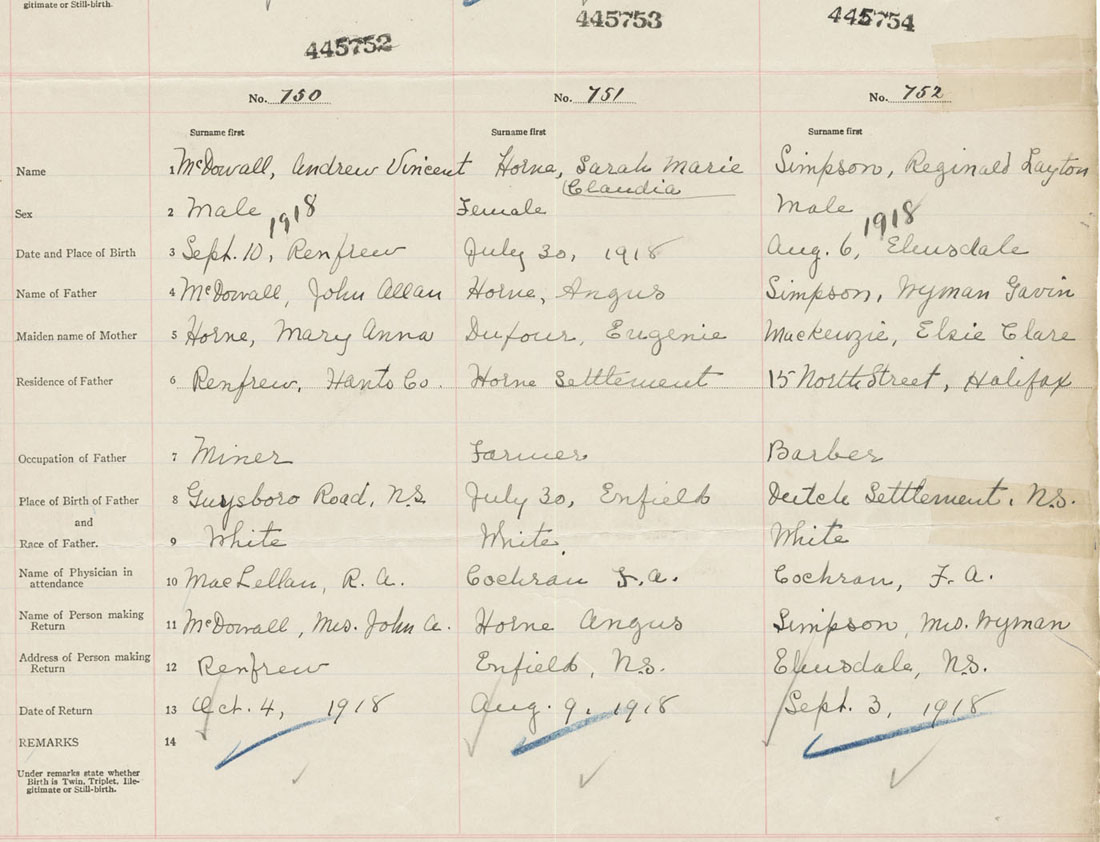 gitimate or Still-birth.
445752 445753 445754
No. 750 No. 751 No. 752
Surname first Surname first Surname first
Name 1 McDowall, Andrew Vincent Horne, Sarah Marie Simpson, Reginald Layton
Claudia
Sex 2 Male Female Male
1918 1918
Date and Place of Birth 3 Sept. 10, Renfrew July 30, 1918 Aug. 6, Elmsdale
Name of Father 4 McDowall, John Allan Horne, Angus Simpson, Wyman Gavin
Maiden name of Mother 5 Horne, Mary Anna Dufour, Eugenie Mackenzie, Elsie Clare
Residence of Father 6 Renfrew, Hants Co. Horne Settlement 15 North Street, Halifax
Occupation of Father 7 Miner Farmer Barber
Place of Birth of Father 8 Guysboro Road, N.S. July 30, Enfield Dutch Settlement, N.S.
and
Race of Father. 9 White White. White
Name of Physician in
attendance 10 MacLellan, R. A. Cochran F.a. Cochran, F. A.
Name of Person making
Return 11 McDowall, Mrs. John A. Horne Angus Simpson, Mrs. Wyman
Address of Person making
Return 12 Renfrew Enfield, N.S. Elmsdale, N.S.
Date of Return 13 Oct. 4, 1918 Aug. 9, 1918 Sept. 3, 1918
REMARKS 14
Under remarks state whether
Birth is Twin, Triplet, Ille-
gitimate or Still-birth.